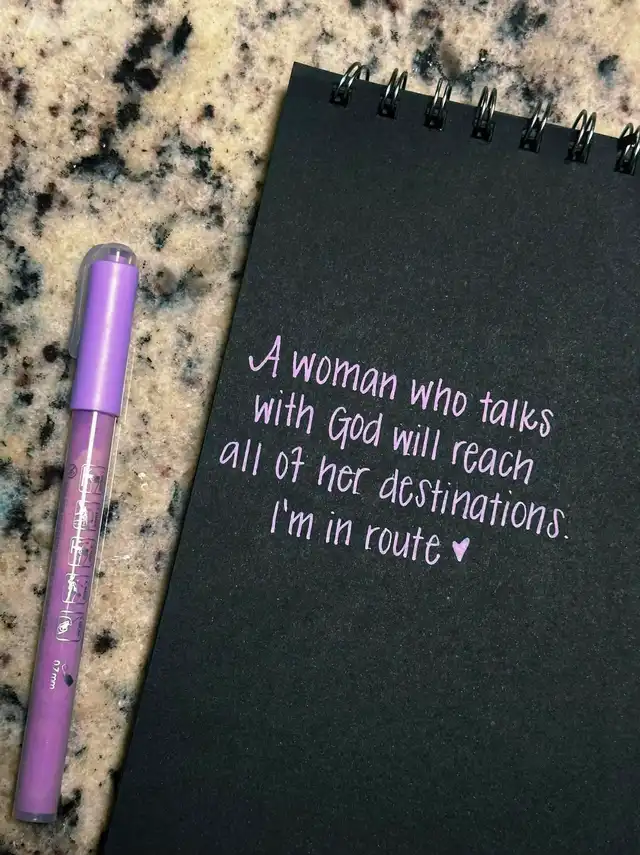 A woman who talks
with God will reach
all of her destinations.
I'm in route ♥
0.7mm